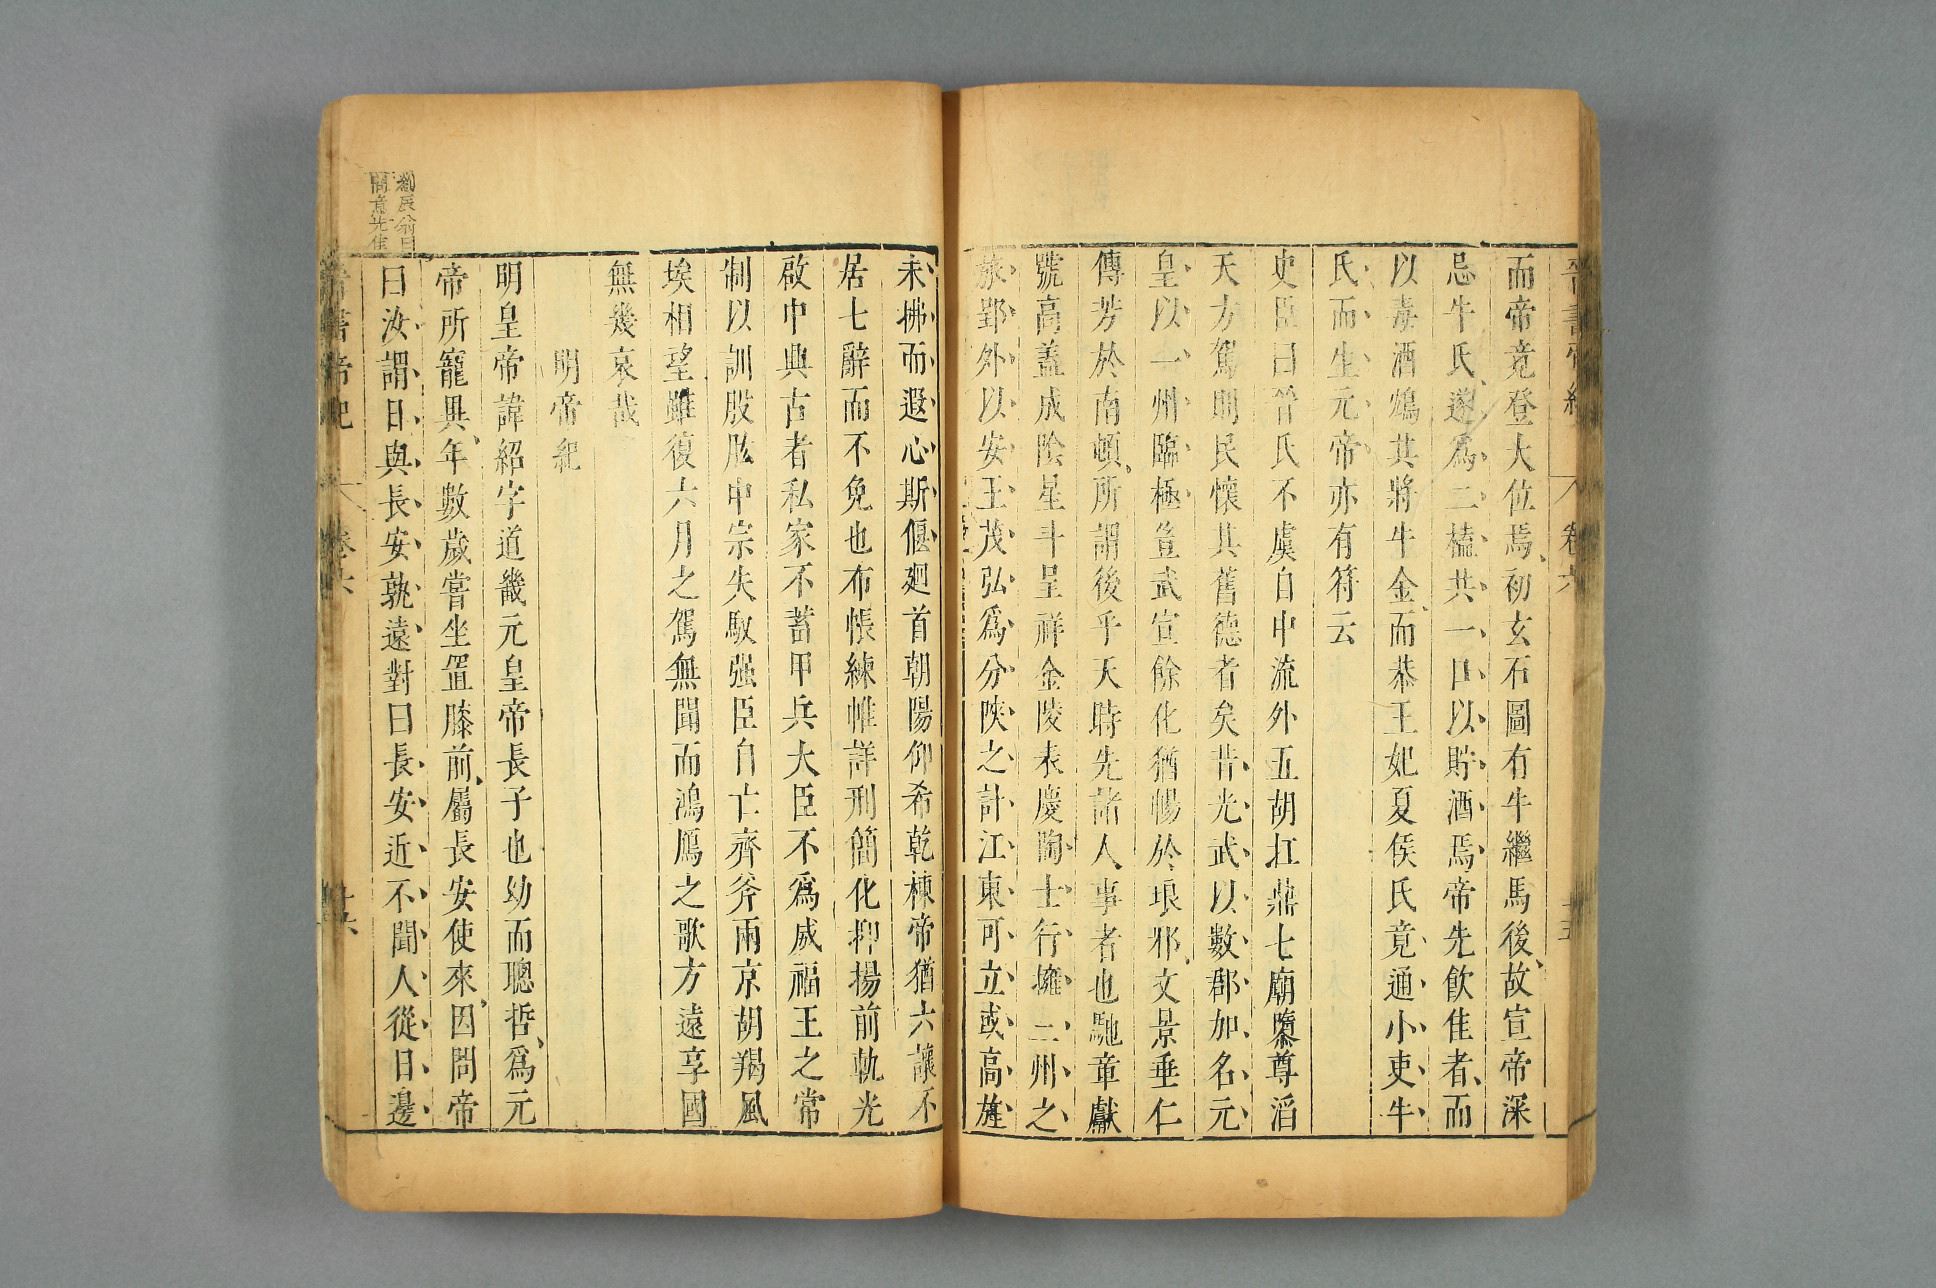 晉書帝紀 卷六 十五
而帝竟登大位焉初玄石圖有牛繼馬後故宣帝深
忌牛氏遂爲二榼共一口以貯酒焉帝先飲佳者而
以毒酒鴆其將牛金而恭王妃夏侯氏竟通小吏牛
氏而生元帝亦有符云
史臣曰晉氏不虞自中流外五胡扛鼎七廟隳尊滔
天方駕則民懷其舊德者矣昔光武以數郡加名元
皇以一州臨極豈武宣餘化猶暢於琅邪文景垂仁
傳芳於南頓所謂後乎天時先諸人事者也馳章獻
號高蓋成陰星斗呈祥金陵表慶陶士行擁二州之
旅郢外以安王茂弘爲分陝之計江東可立或高旌
未拂而遐心斯偃廻首朝陽仰希乾棟帝猶六讓不
居七辭而不免也布帳練帷詳刑簡化抑揚前軌光
啟中興古者私家不蓄甲兵大臣不爲威福王之常
制以訓股肱中宗失馭强臣自亡齊斧兩京胡羯風
埃相望雖復六月之駕無聞而鴻鴈之歌方遠享國
無幾哀哉
明帝紀
明皇帝諱紹字道畿元皇帝長子也幼而聰哲爲元
帝所寵異年數歲嘗坐置膝前屬長安使來因問帝
曰汝謂日與長安孰遠對曰長安近不聞人從日邊
劉辰翁曰
問意先佳
晉書帝紀 卷六 十六